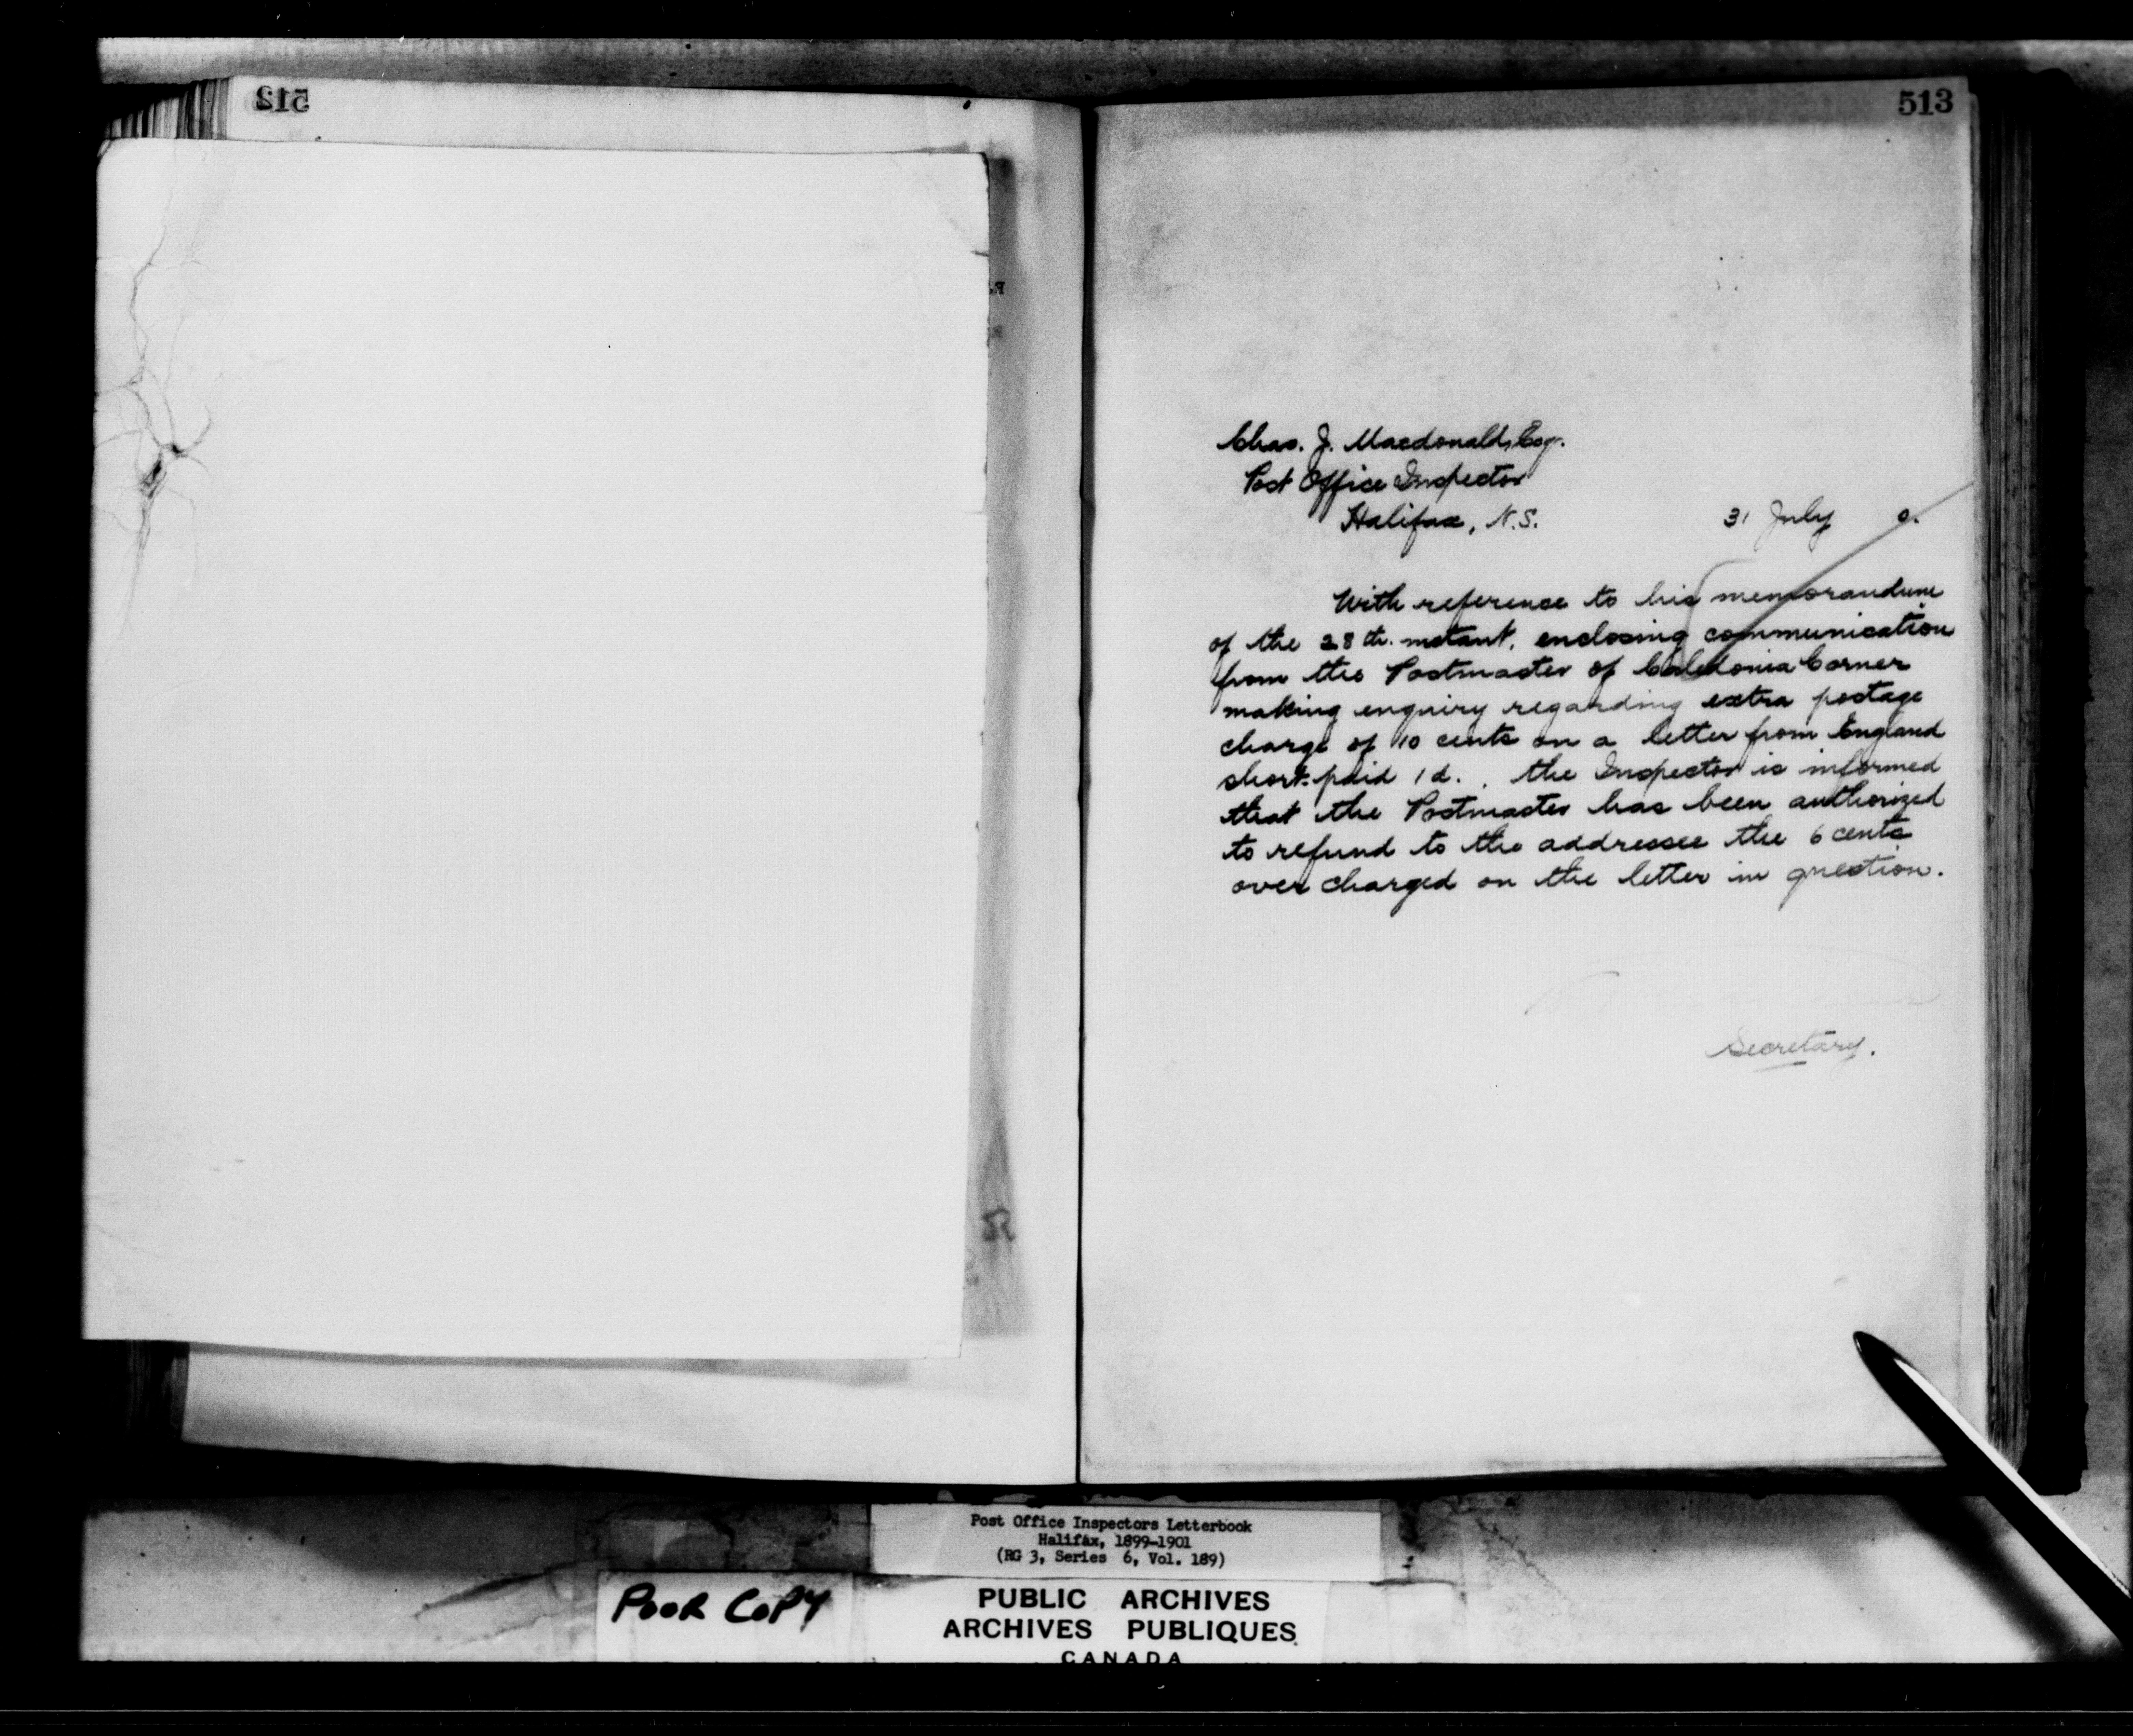 512
513
Chas. J. Macdonald, Esqr.
Post Office Inspector
Halifax, N.S.
31 July 0.
With reference to his memorandum
of the 28th. instant, enclosing communication
from the Postmaster of Caledonia Corner
making enquiry regarding extra postage
charge of 10 cents on a letter from England
short-paid 1d., the Inspector is informed
that the Postmaster has been authorized
to refund to the addressee the 6 cents
over charged on the letter in question.
Secretary.
Post Office Inspectors Letterbook
Halifax, 1899-1901
(RG 3, Series 6, Vol. 189)
POOR COPY
PUBLIC ARCHIVES
ARCHIVES PUBLIQUES
CANADA